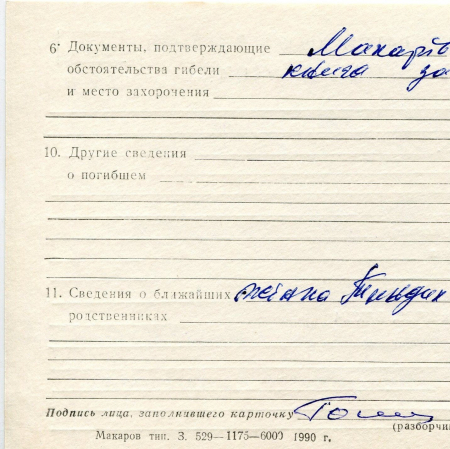 6· Документы, подтверждающие Макарів
обстоятельства гибели книга за
и место захоронения
10. Другие сведения
о погибшем
11. Сведения о ближайших
родственниках
Подпись лица, заполнившего карточку
(разборчи
Макаров тип. З. 529—1175—6000 1990 г,